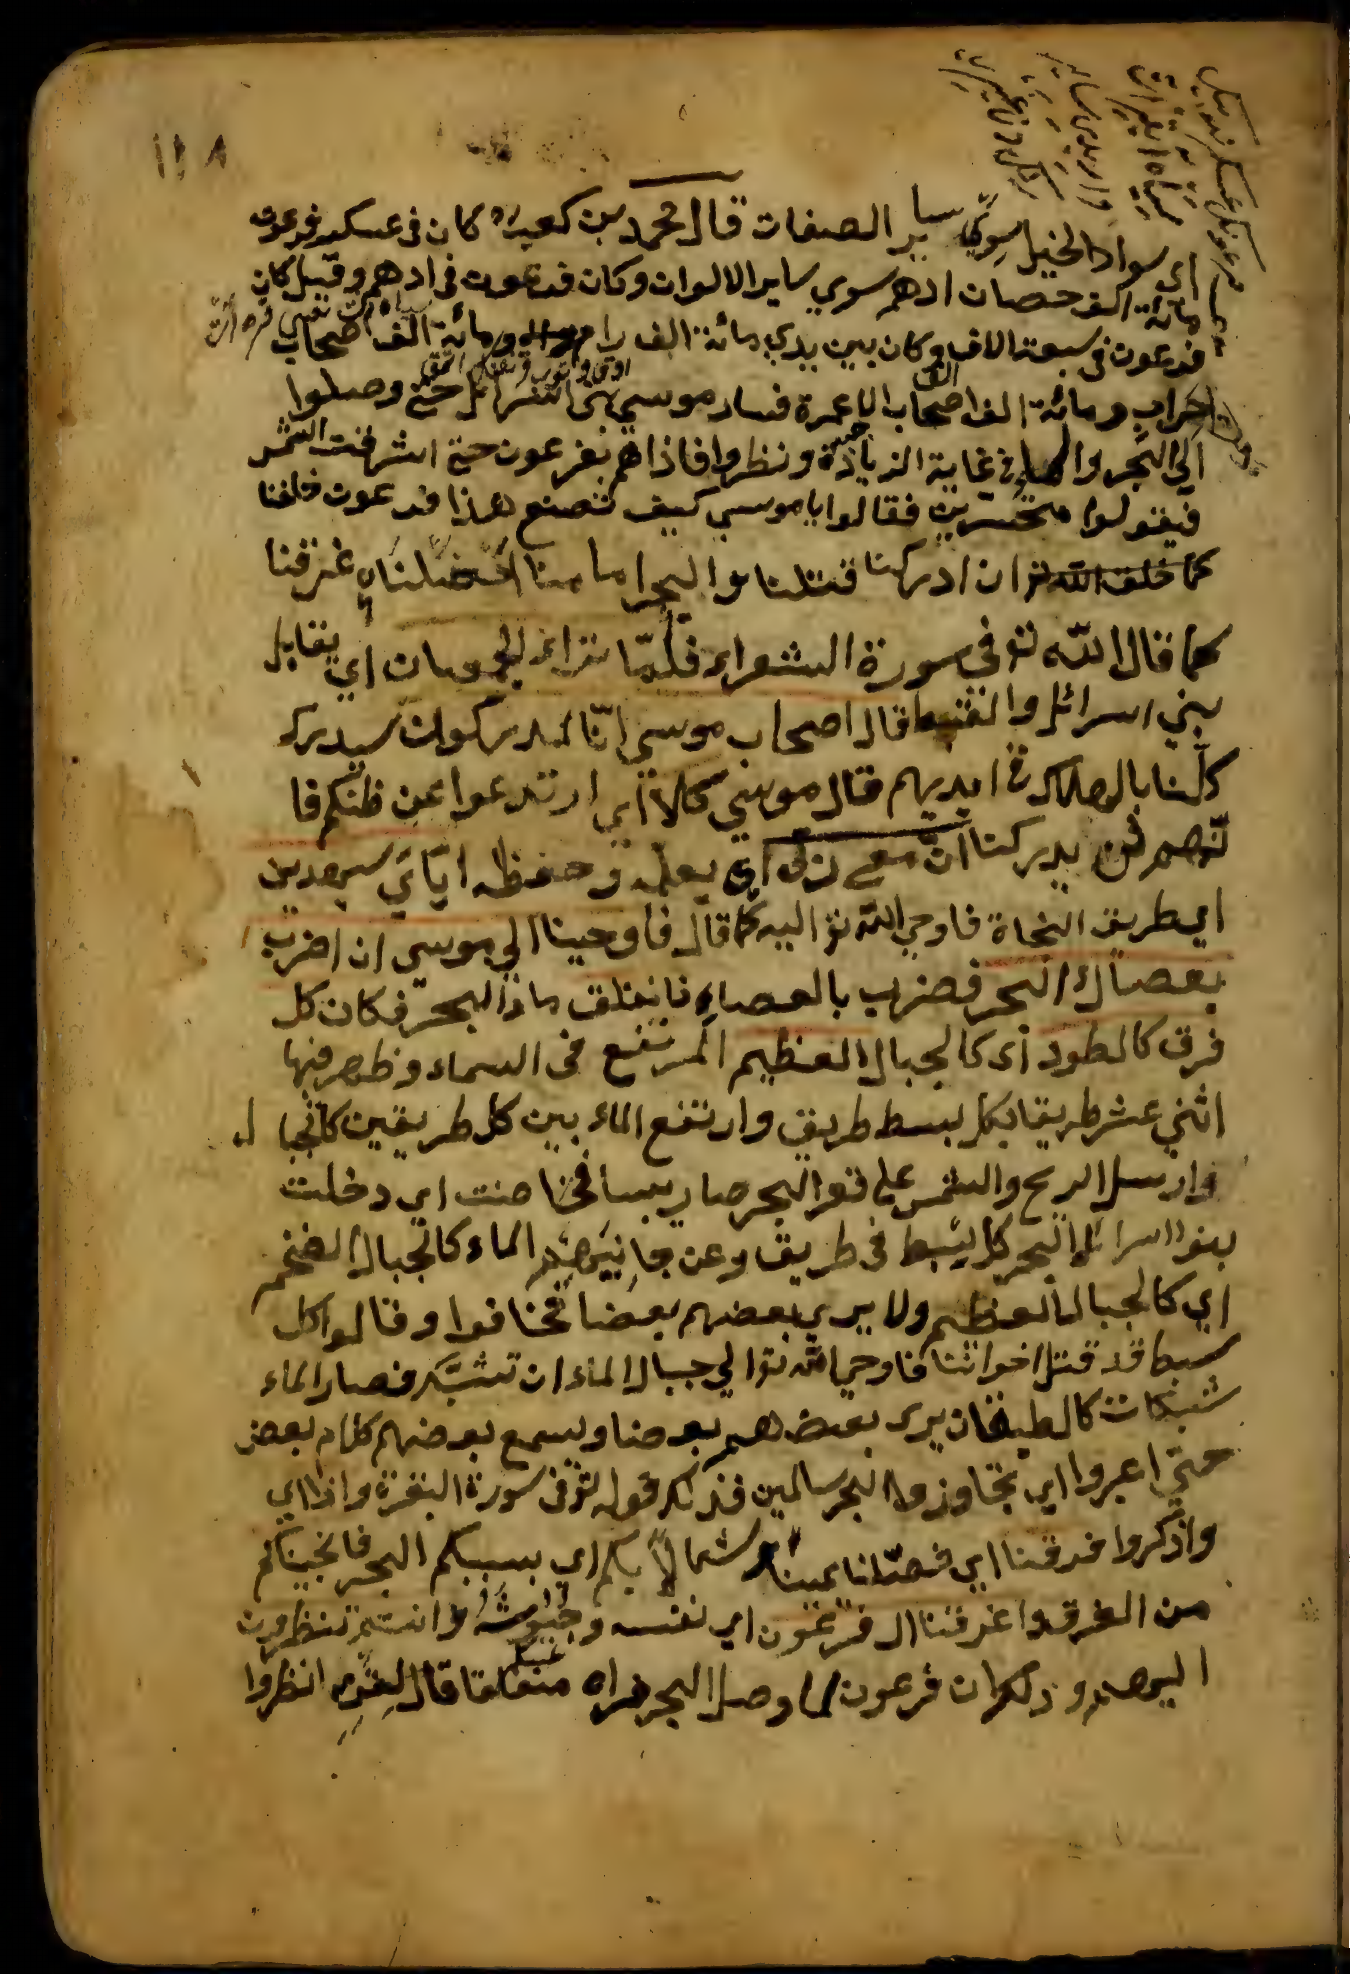 ١١٨
اى سواد الخيل سوي ساير الصفات قال محمد بن كعب كان فى عسكر فرعون
مائة الف حصان ادهم سوي ساير الالوان وكان فرعون فى ادهم وقيل كان
فرعون فى سبعة الاف وكان بين يدي مائة الف رام ومائة الف اصحاب
حراب ومائة الف اصحاب الاعمرة فسار موسى بنى اسرائل حتى وصلوا
الي البحر والماء فى غاية الزيادة ونظروا فاذا هم بفرعون حتى اشرقت الشمس
فيقولوا متحسرين فقالوا يا موسى كيف تصنع هذا فرعون خلفنا
ان ادركنا قتلنا والبحر امامنا ان دخلناه غرقنا
كما قال الله تع فى سورة الشعراء فلمّا تراء الجمعان اي يقابل
بني اسرائل والقبط قال اصحاب موسى انّا لمدركون سيدرك
كلّنا بالهلاك فى ايديهم قال موسي كلا اي ارتدعوا عن ظنكم فا
نّهم لن يدركنا انّ معي ربى اى بعلمه وحفظه ايّاي سيهدين
اي طريق النجاة فاوحي الله تع اليه كما قال فاوحينا الي موسى ان اضرب
بعصاك البحر فضرب بالعصاء فانفلق ماء البحر فكان كل
فرق كالطود اى كالجبال العظيم المرتفع فى السماء وظهر فيها
اثني عشر طريقا بكل بسط طريق وارتفع الماء بين كل طريقين كالجبا ل
وارسل الريح والشمس على قعر البحر صار يبسا فخاضت اي دخلت
بنو اسرائل البحر كل بسط فى طريق وعن جانبيهم الماء كالجبال الضخم
اي كالجبال العظيم ولا يرى بعضهم بعضا فخافوا وقالوا كل
سبط قد قتل اخواننا فاوحي الله تع الي جبال الماء ان تشبّك فصار الماء
شبكات كالطبقان يرى بعضهم بعضا ويسمع بعضهم كلام بعض
حتي اعبروا اي تجاوزوا البحر سالمين فذلك قوله تع فى سورة البقرة واذ اي
واذكروا فرقنا اي فصّلنا يمينا وشمالاً بكم اي بسببكم البحر فانجيناكم
من الغرق واغرقنا ال فرعون اي نفسه وجيوشه وانتم تنظرون
اليهم وذلك ان فرعون لما وصل البحر فراه منفلقا قال لقومه انظروا